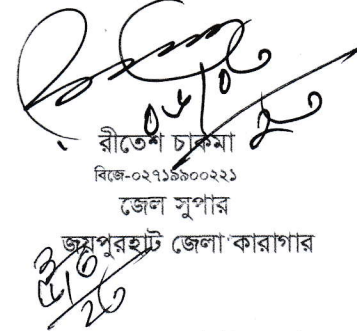 রীতেশ চাকমা
বিজে-০২৭১৯৯০০২২১
জেল সুপার
জয়পুরহাট জেলা কারাগার